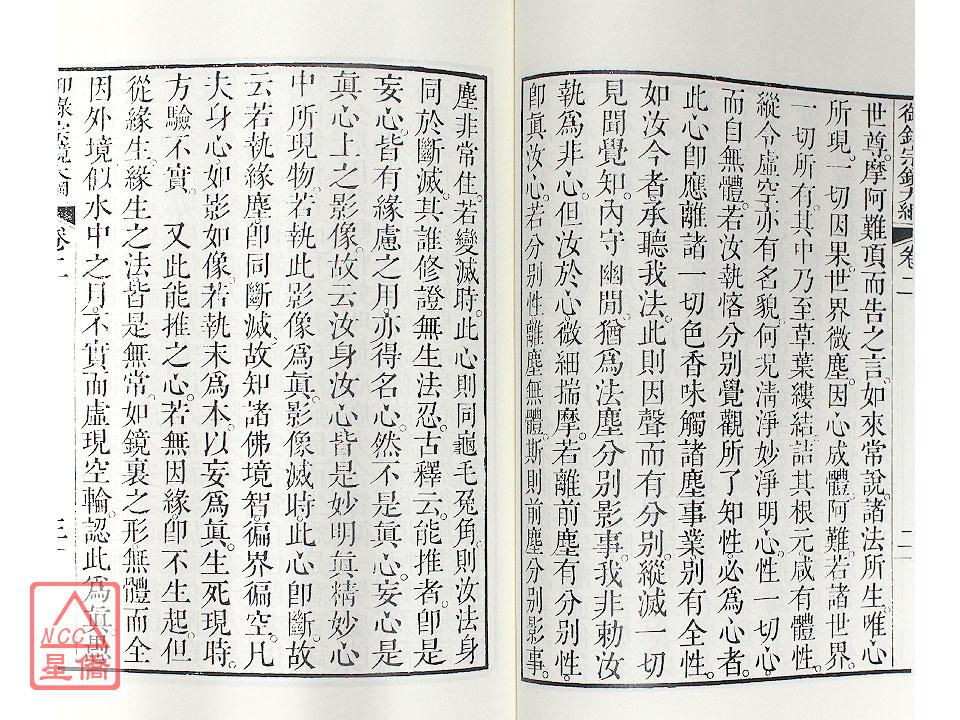 御錄宗鏡大綱 卷二 二
世尊。摩阿難頂而告之言。如來常說。諸法所生。唯心
所現。一切因果。世界微塵。因心成體。阿難。若諸世界。
一切所有。其中乃至草葉縷結。詰其根元。咸有體性。
縱令虛空。亦有名貌。何況清淨妙淨明心。性一切心。
而自無體。若汝執悋分別覺觀。所了知性。必為心者。
此心卽應離諸一切色香味觸。諸塵事業。別有全性。
如汝今者。承聽我法。此則因聲而有分別。縱滅一切
見聞覺知。內守幽閒。猶為法塵分別影事。我非勅汝
執為非心。但汝於心。微細揣摩。若離前塵有分別性。
卽眞汝心。若分別性。離塵無體。斯則前塵分別影事。
塵非常住。若變滅時。此心則同龜毛兔角。則汝法身
同於斷滅。其誰修證無生法忍。古釋云。能推者。卽是
妄心。皆有緣慮之用。亦得名心。然不是眞心。妄心是
眞心上之影像。故云汝身汝心。皆是妙明眞精妙心
中所現物。若執此影像為眞。影像滅時。此心卽斷。故
云若執緣塵。卽同斷滅。故知諸佛境智。徧界徧空。凡
夫身心。如影如像。若執末為本。以妄為眞。生死現時。
方驗不實。 又此能推之心。若無因緣。卽不生起。但
從緣生。緣生之法。皆是無常。如鏡裏之形。無體而全
因外境。似水中之月。不實而虛現空輪。認此為眞。愚
卷二 三
NCC
星僑